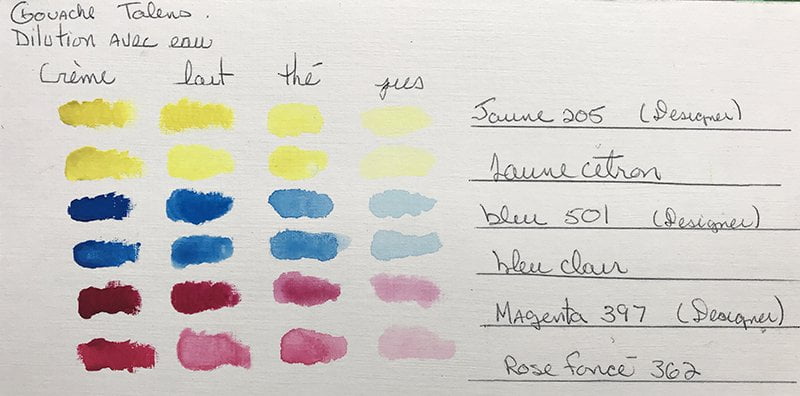 Gouache Talens.
Dilution avec eau
Crème lait thé jus
Jaune 205 (Designer)
Jaune citron
bleu 501 (Designer)
bleu clair
Magenta 397 (Designer)
Rose foncé 362